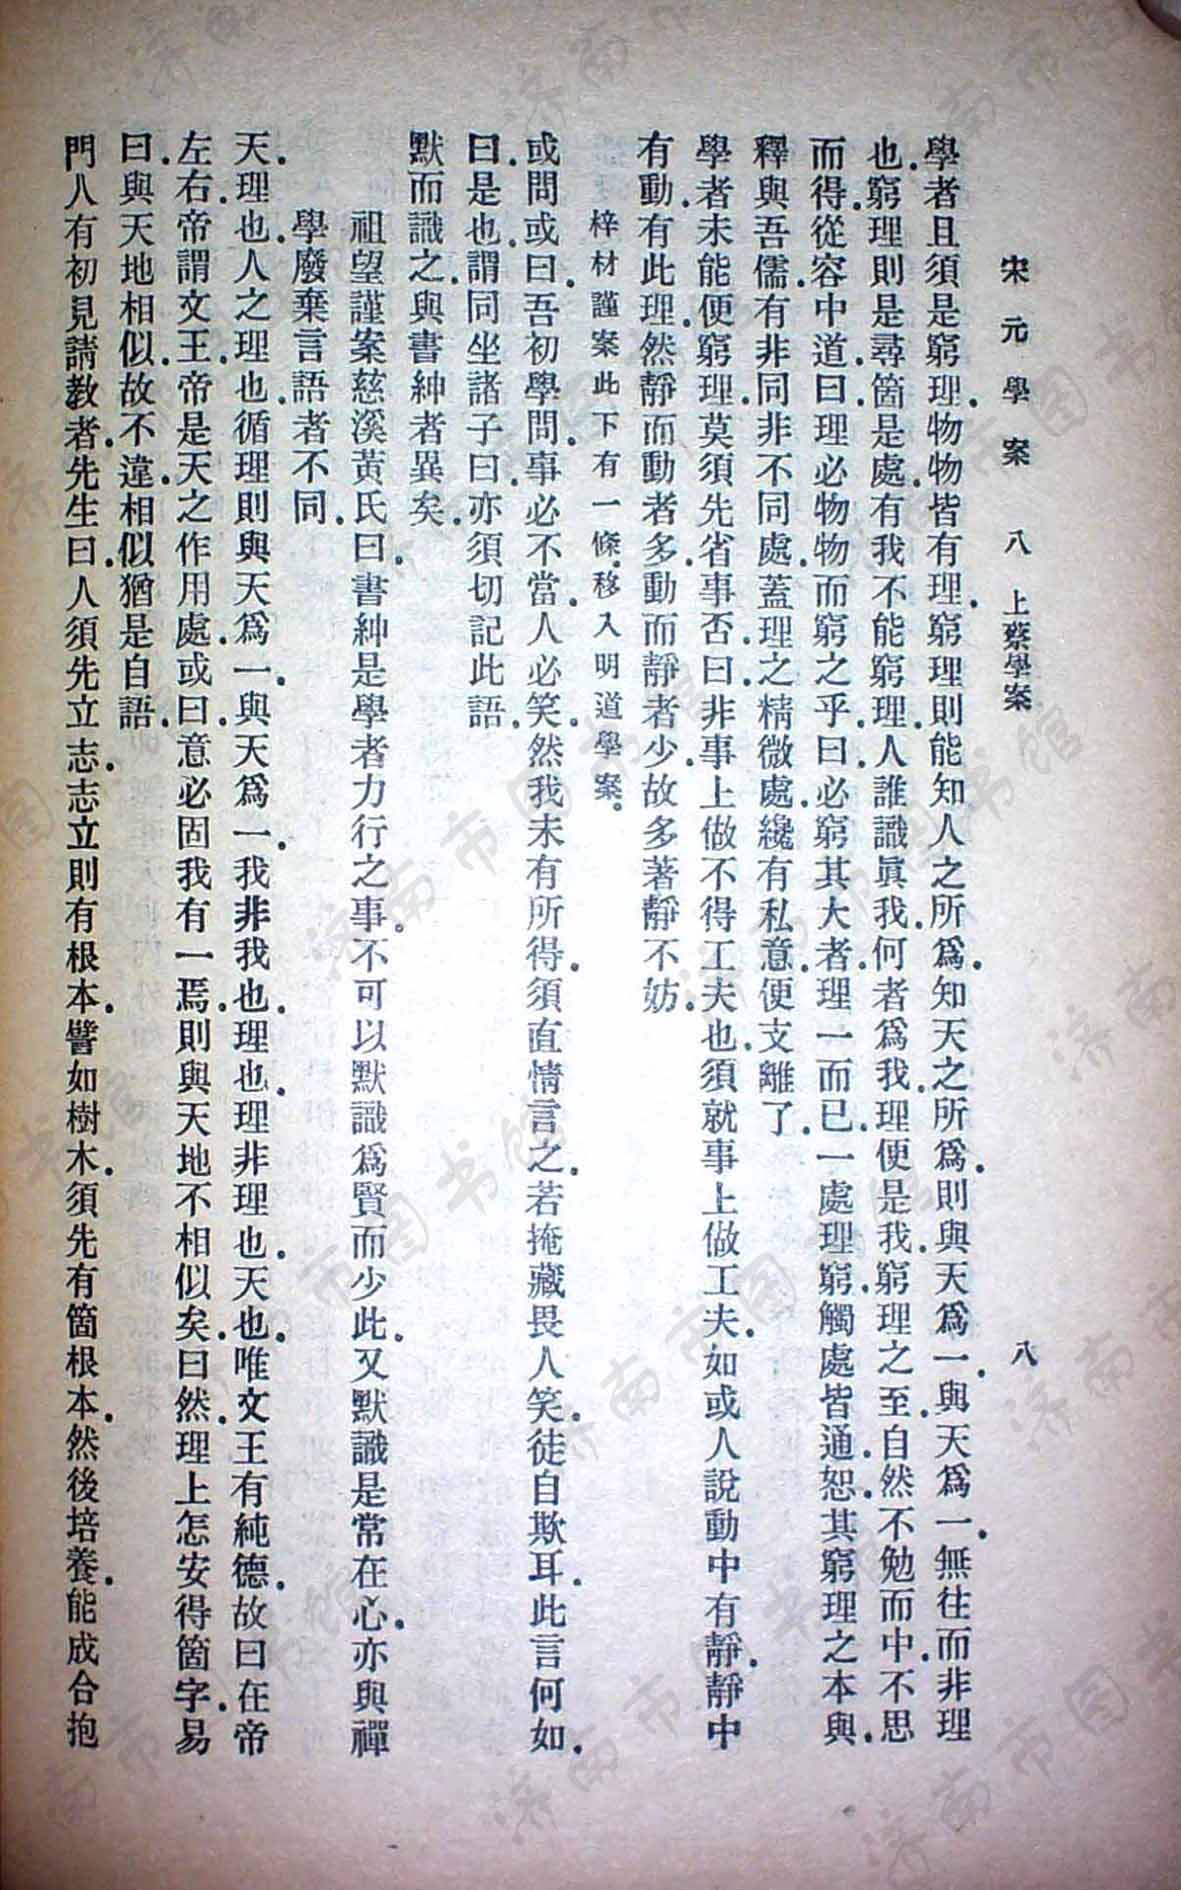 宋元學案 八 上蔡學案 八
學者且須是窮理.物物皆有理.窮理則能知人之所爲.知天之所爲.則與天爲一.與天爲一.無往而非理
也.窮理則是尋箇是處.有我不能窮理.人誰識眞我.何者爲我.理便是我.窮理之至.自然不勉而中.不思
而得.從容中道.曰.理必物物而窮之乎.曰.必窮其大者.理一而已.一處理窮.觸處皆通.恕.其窮理之本與.
釋與吾儒.有非同非不同處.蓋理之精微處.纔有私意.便支離了.
學者未能便窮理.莫須先省事否.曰.非事上做不得工夫也.須就事上做工夫.如或人說動中有靜.靜中
有動.有此理.然靜而動者多.動而靜者少.故多著靜不妨.
梓材謹案此下有一條.移入明道學案。
或問.或曰.吾初學問.事必不當.人必笑.然我未有所得.須直情言之.若掩藏畏人笑.徒自欺耳.此言何如.
曰.是也.謂同坐諸子曰.亦須切記此語.
默而識之.與書紳者異矣.
祖望謹案慈溪黃氏曰.書紳是學者力行之事.不可以默識爲賢而少此.又默識是常在心.亦與禪
學廢棄言語者不同.
天.理也.人之理也.循理則與天爲一.與天爲一.我非我也.理也.理非理也.天也.唯文王有純德.故曰在帝
左右.帝謂文王.帝是天之作用處.或曰.意必固我有一焉.則與天地不相似矣.曰然.理上怎安得箇字.易
曰.與天地相似.故不違.相似猶是自語.
門人有初見請教者.先生曰.人須先立志.志立則有根本.譬如樹木.須先有箇根本.然後培養.能成合抱
济南市图书馆